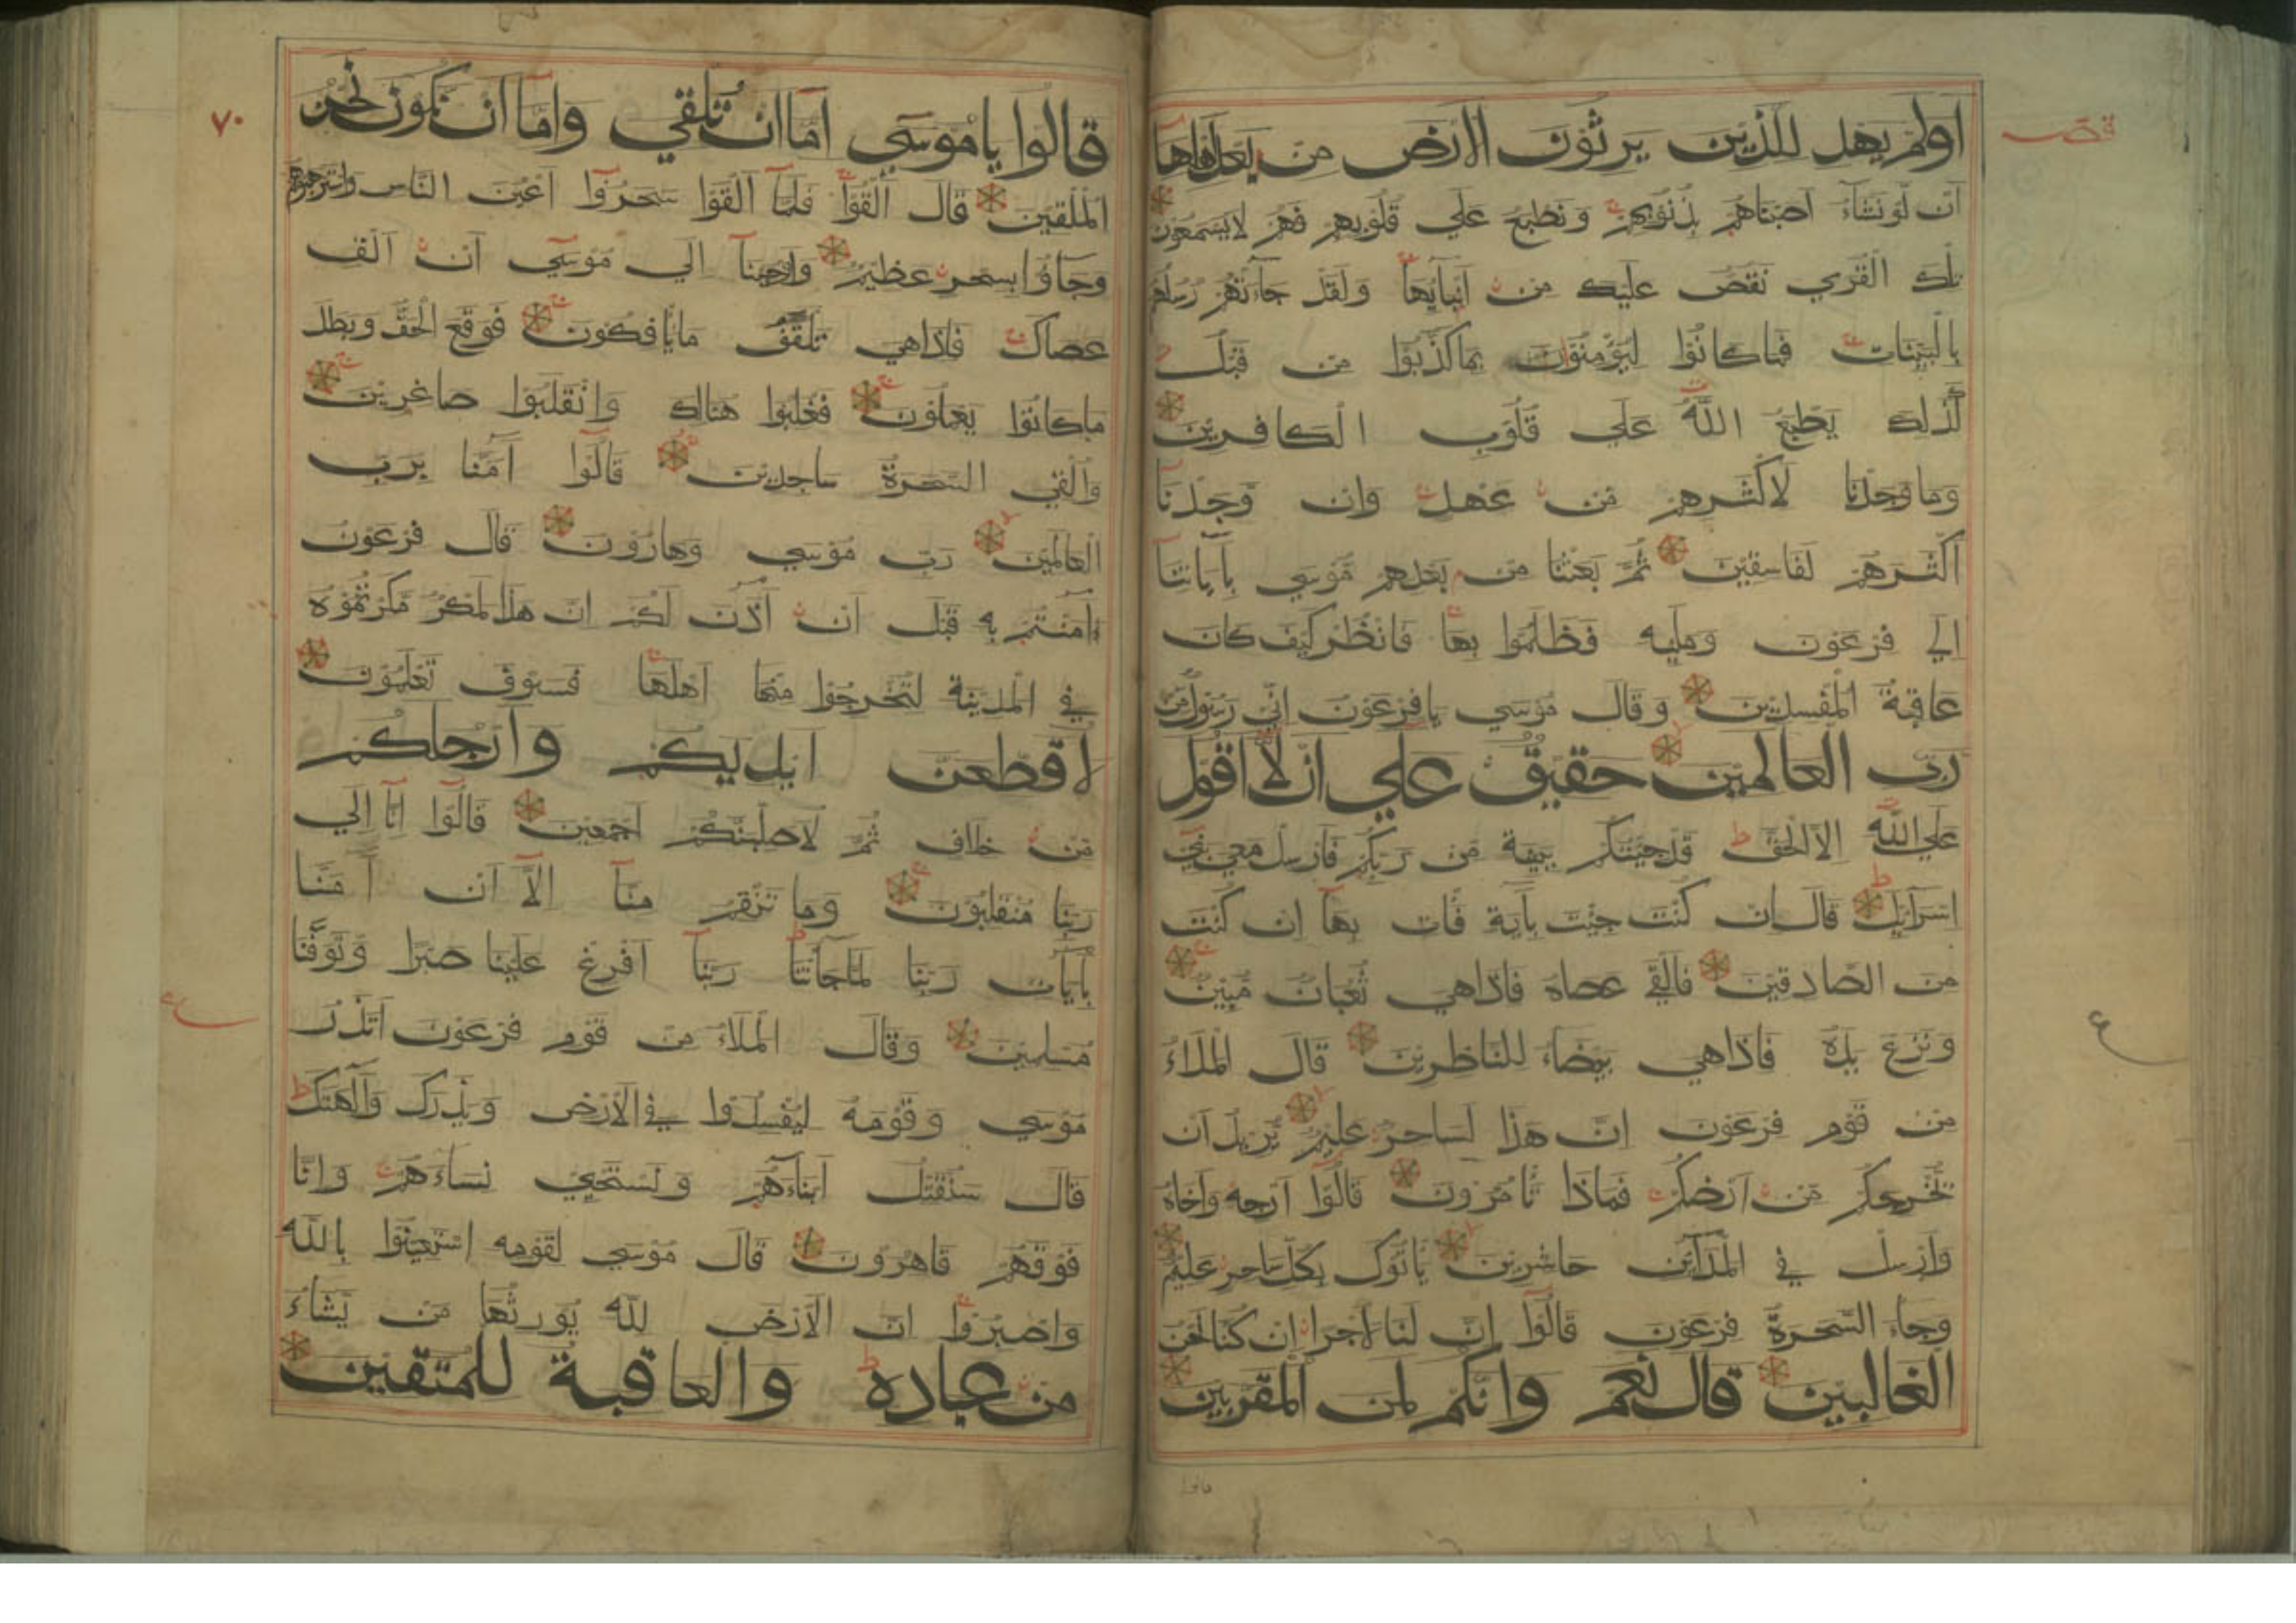 قصـ
اولم يهد للذين يرثون الارض من بعد اهلها
ان لو نشاء اصبناهم بذنوبهم ونطبع علي قلوبهم فهم لايسمعون
تلك القري نقص عليك من انبايها ولقد جاءتهم رسلهم
بالبينات فماكانوا ليؤمنوا بماكذبوا من قبل
كذلك يطبع الله علي قلوب الكافرين
وماوجدنا لاكثرهم من عهد وان وجدنا
اكثرهم لفاسقين ثم بعثنا من بعدهم موسي باياتنا
الي فرعون ومليه فظلموا بها فانظر كيف كان
عاقبة المفسدين وقال موسي يافرعون اني رسول من
رب العالمين حقيق علي ان لا اقول
علي الله الا الحق قد جيتكم ببينة من ربكم فارسل معي بني
اسرايل قال ان كنت جيت بآية فات بها ان كنت
من الصادقين فالقي عصاه فاذاهي ثعبان مبين
ونزع يده فاذاهي بيضاء للناظرين قال الملاء
من قوم فرعون ان هذا لساحر عليم يريد ان
يخرجكم من ارضكم فماذا تامرون قالوا ارجه واخاه
وارسل في المداين حاشرين ياتوك بكل ساحر عليم
وجاء السحرة فرعون قالوا ان لنا لاجرا ان كنا نحن
الغالبين قال نعم وانكم لمن المقربين
قالوا
ع
٧٠
قالوا ياموسي اما ان تلقي واما ان نكون نحن
الملقين قال القوا فلما القوا سحروا اعين الناس واسترهبوهم
وجاؤا بسحر عظيم واوحينا الي موسي ان الق
عصاك فاذاهي تلقف مايافكون فوقع الحق وبطل
ماكانوا يعملون فغلبوا هنالك وانقلبوا صاغرين
والقي السحرة ساجدين قالوا آمنا برب
العالمين رب موسي وهارون قال فرعون
ءامنتم به قبل ان آذن لكم ان هذا لمكر مكرتموه
في المدينة لتخرجوا منها اهلها فسوف تعلمون
لاقطعن ايديكم وارجلكم
من خلاف ثم لاصلبنكم اجمعين قالوا انا الي
ربنا منقلبون وما تنقم منا الا ان آمنا
بآيات ربنا لما جاءتنا ربنا افرغ علينا صبرا وتوفنا
مسلمين وقال الملاء من قوم فرعون اتذر
موسي وقومه ليفسدوا في الارض ويذرك وآلهتك
قال سنقتل ابناءهم ونستحيي نساءهم وانا
فوقهم قاهرون قال موسي لقومه استعينوا بالله
واصبروا ان الارض لله يورثها من يشاء
من عباده والعاقبة للمتقين